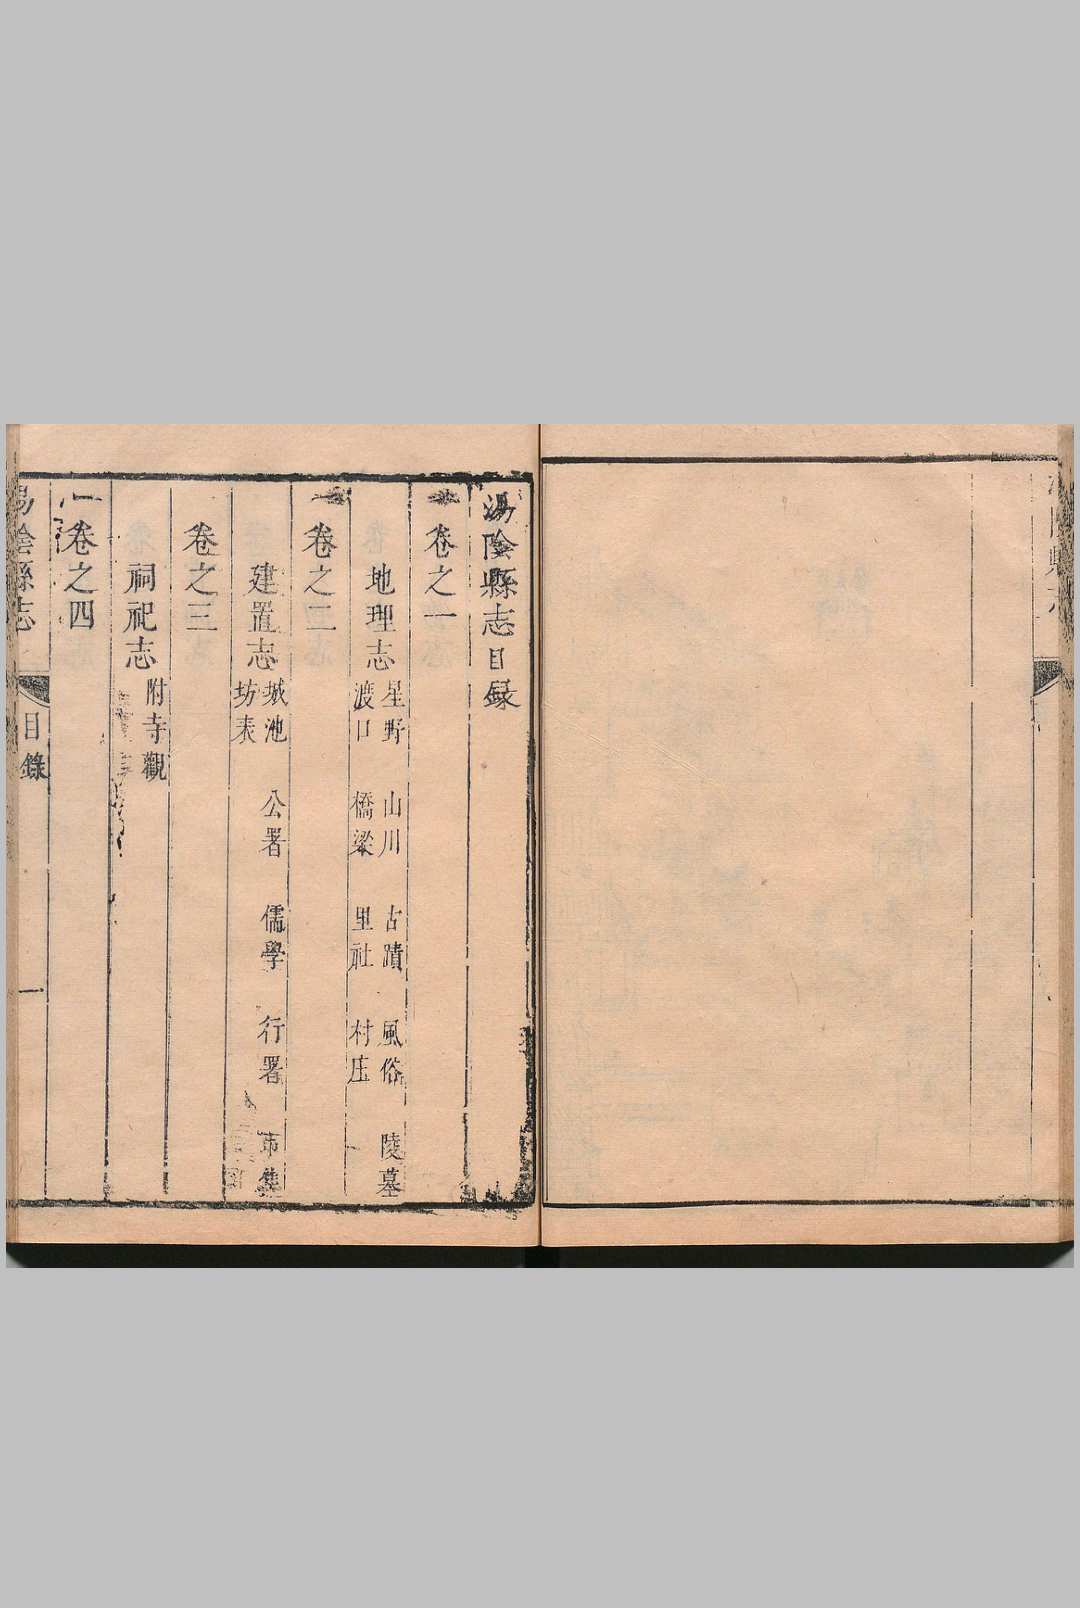 湯陰縣志目録
卷之一
地理志
星野 山川 古蹟 風俗 陵墓
渡口 橋梁 里社 村庄
卷之二
建置志
城池 公署 儒學 行署 市集
坊表
卷之三
祠祀志
附寺觀
卷之四
湯陰縣志 目錄 一